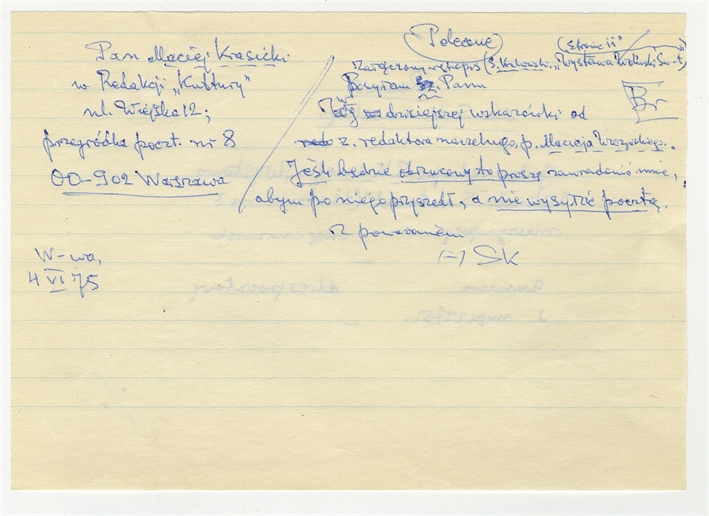 Pan Maciej Krasicki
w Redakcji „Kultury”
ul. Wiejska 12;
przegródka poczt. nr 8
00-902 Warszawa
W-wa,
4 VI 75
(Polecone)
Załączony rękopis (S. „Wystawa
Posyłam Sz. Panu
w dzisiejszej wskazówki od
z. redaktora naczelnego, p. Macieja
Jeśli będzie odrzucony to proszę zawiadomić mnie,
abym po niego przyszedł, a nie wysyłać pocztą.
Z poważaniem
(-) SK